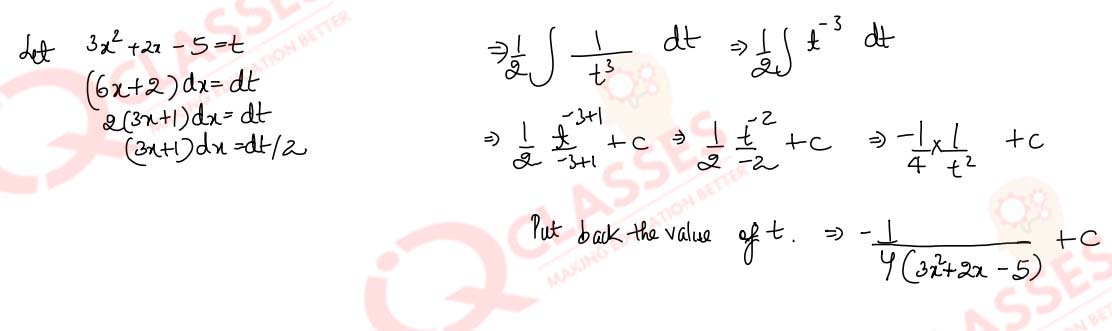 Let 3x² + 2x - 5 = t
(6x+2) dx = dt
2(3x+1) dx = dt
(3x+1) dx = dt/2
⇒ 1/2 ∫ 1/t³ dt ⇒ 1/2 ∫ t⁻³ dt
⇒ 1/2 t⁻³⁺¹/-3+1 + c ⇒ 1/2 t⁻²/-2 + c ⇒ -1/4 × 1/t² + c
Put back the value of t. ⇒ -1/4(3x²+2x-5) + c
CLASSES
MAKING EDUCATION BETTER
CLASSES
MAKING EDUCATION BETTER